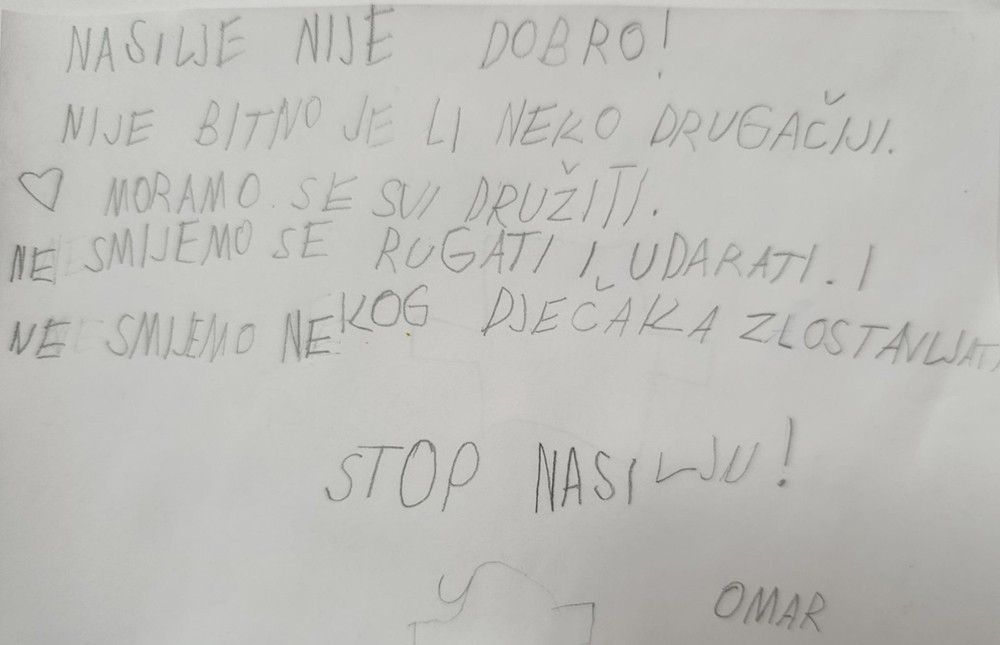 NASILJE NIJE DOBRO!
NIJE BITNO JE LI NEKO DRUGAČIJI.
MORAMO SE SVI DRUŽITI.
NE SMIJEMO SE RUGATI I UDARATI. I
NE SMIJEMO NEKOG DJEČAKA ZLOSTAVLJATI
STOP NASILJU!
OMAR